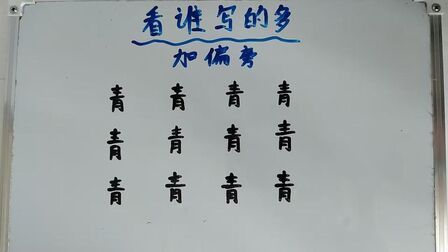 看谁写的多
加偏旁
青 青 青 青
青 青 青 青
青 青 青 青